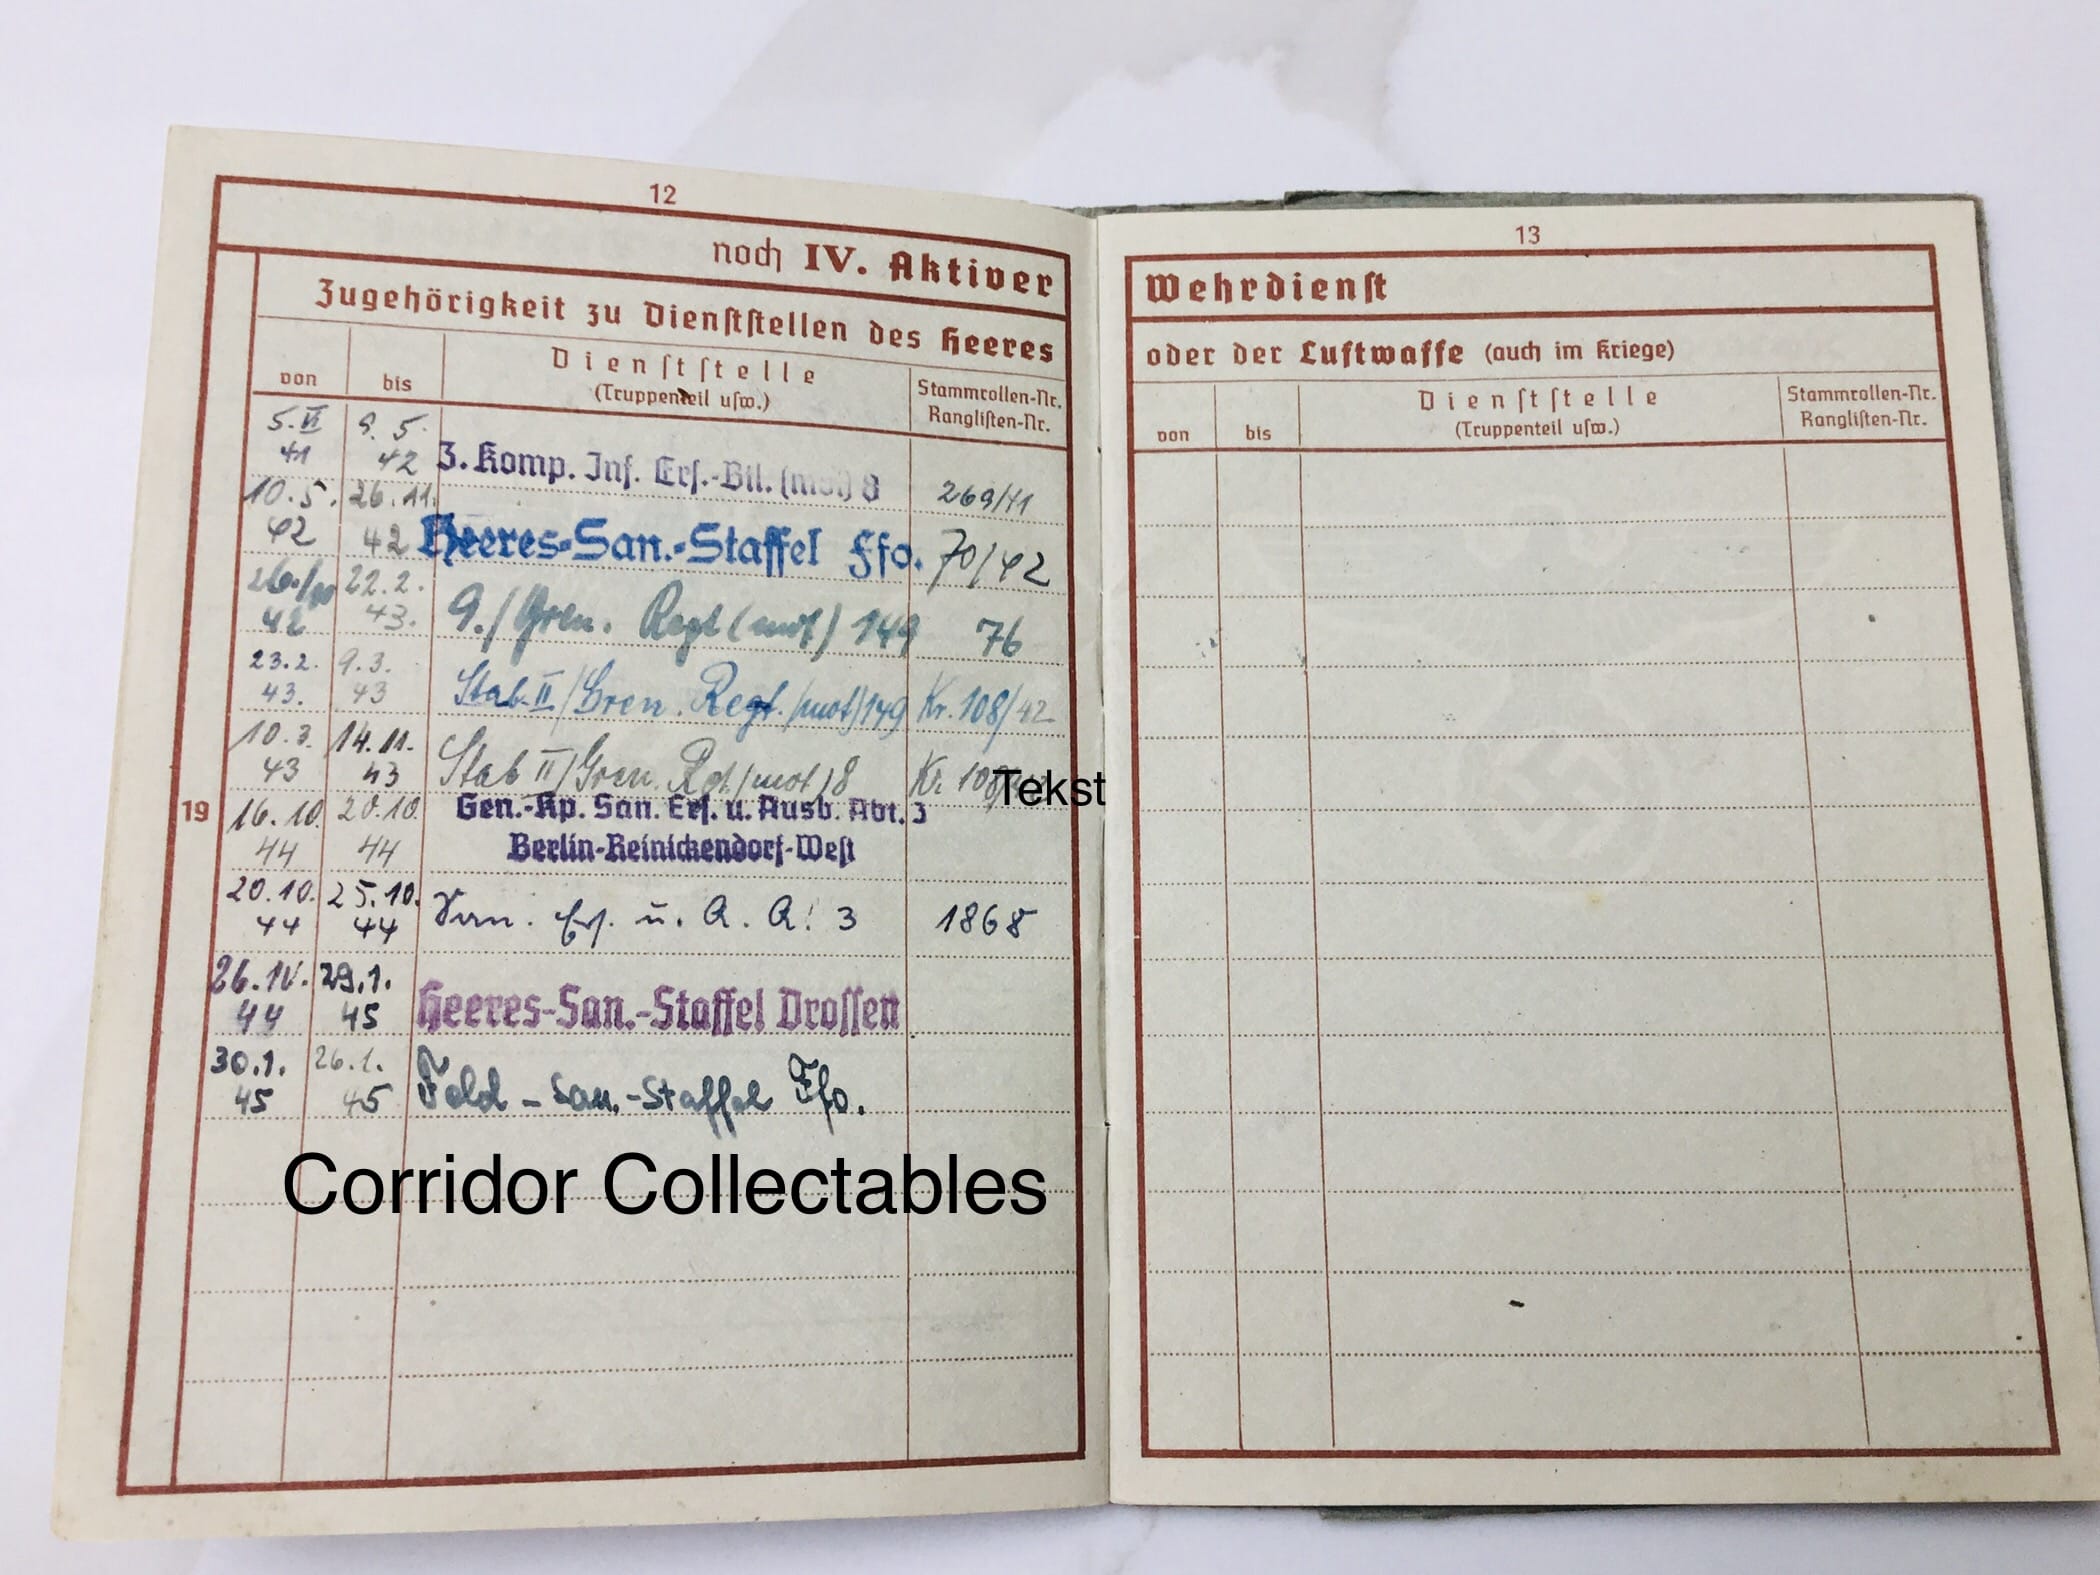 12
noch IV. Aktiver
Zugehörigkeit zu Dienststellen des Heeres
von bis Dienststelle (Truppenteil usw.) Stammrollen-Nr. Ranglisten-Nr.
5.VI 41 9.5. 42 3. Komp. Inf. Ers.-Btl. (mot) 8 269/41
10.5. 42 26.11. 42 Heeres-San.-Staffel Ffo. 70/42
42 22.2. 43. 9./Gren. Regt (mot) 149 76
23.2. 43. 9.3. 43 Stab II/Gren. Regt. (mot) 149 Kr. 108/42
10.3. 43 14.11. 43 Stab II/Gren. Rgt. (mot) 8 Kr.
Tekst
19
16.10. 44 20.10. 44 Gen.-Kp. San. Ers. u. Ausb. Abt. 3
Berlin-Reinickendorf-West
20.10. 44 25.10. 44 San. Ers. u. A. A. 3 1868
44 29.1. 45 Heeres-San.-Staffel Drossen
30.1. 45 26.1. 45 Feld-San.-Staffel Ffo.
Corridor Collectables
13
Wehrdienst
oder der Luftwaffe (auch im Kriege)
von bis Dienststelle (Truppenteil usw.) Stammrollen-Nr. Ranglisten-Nr.